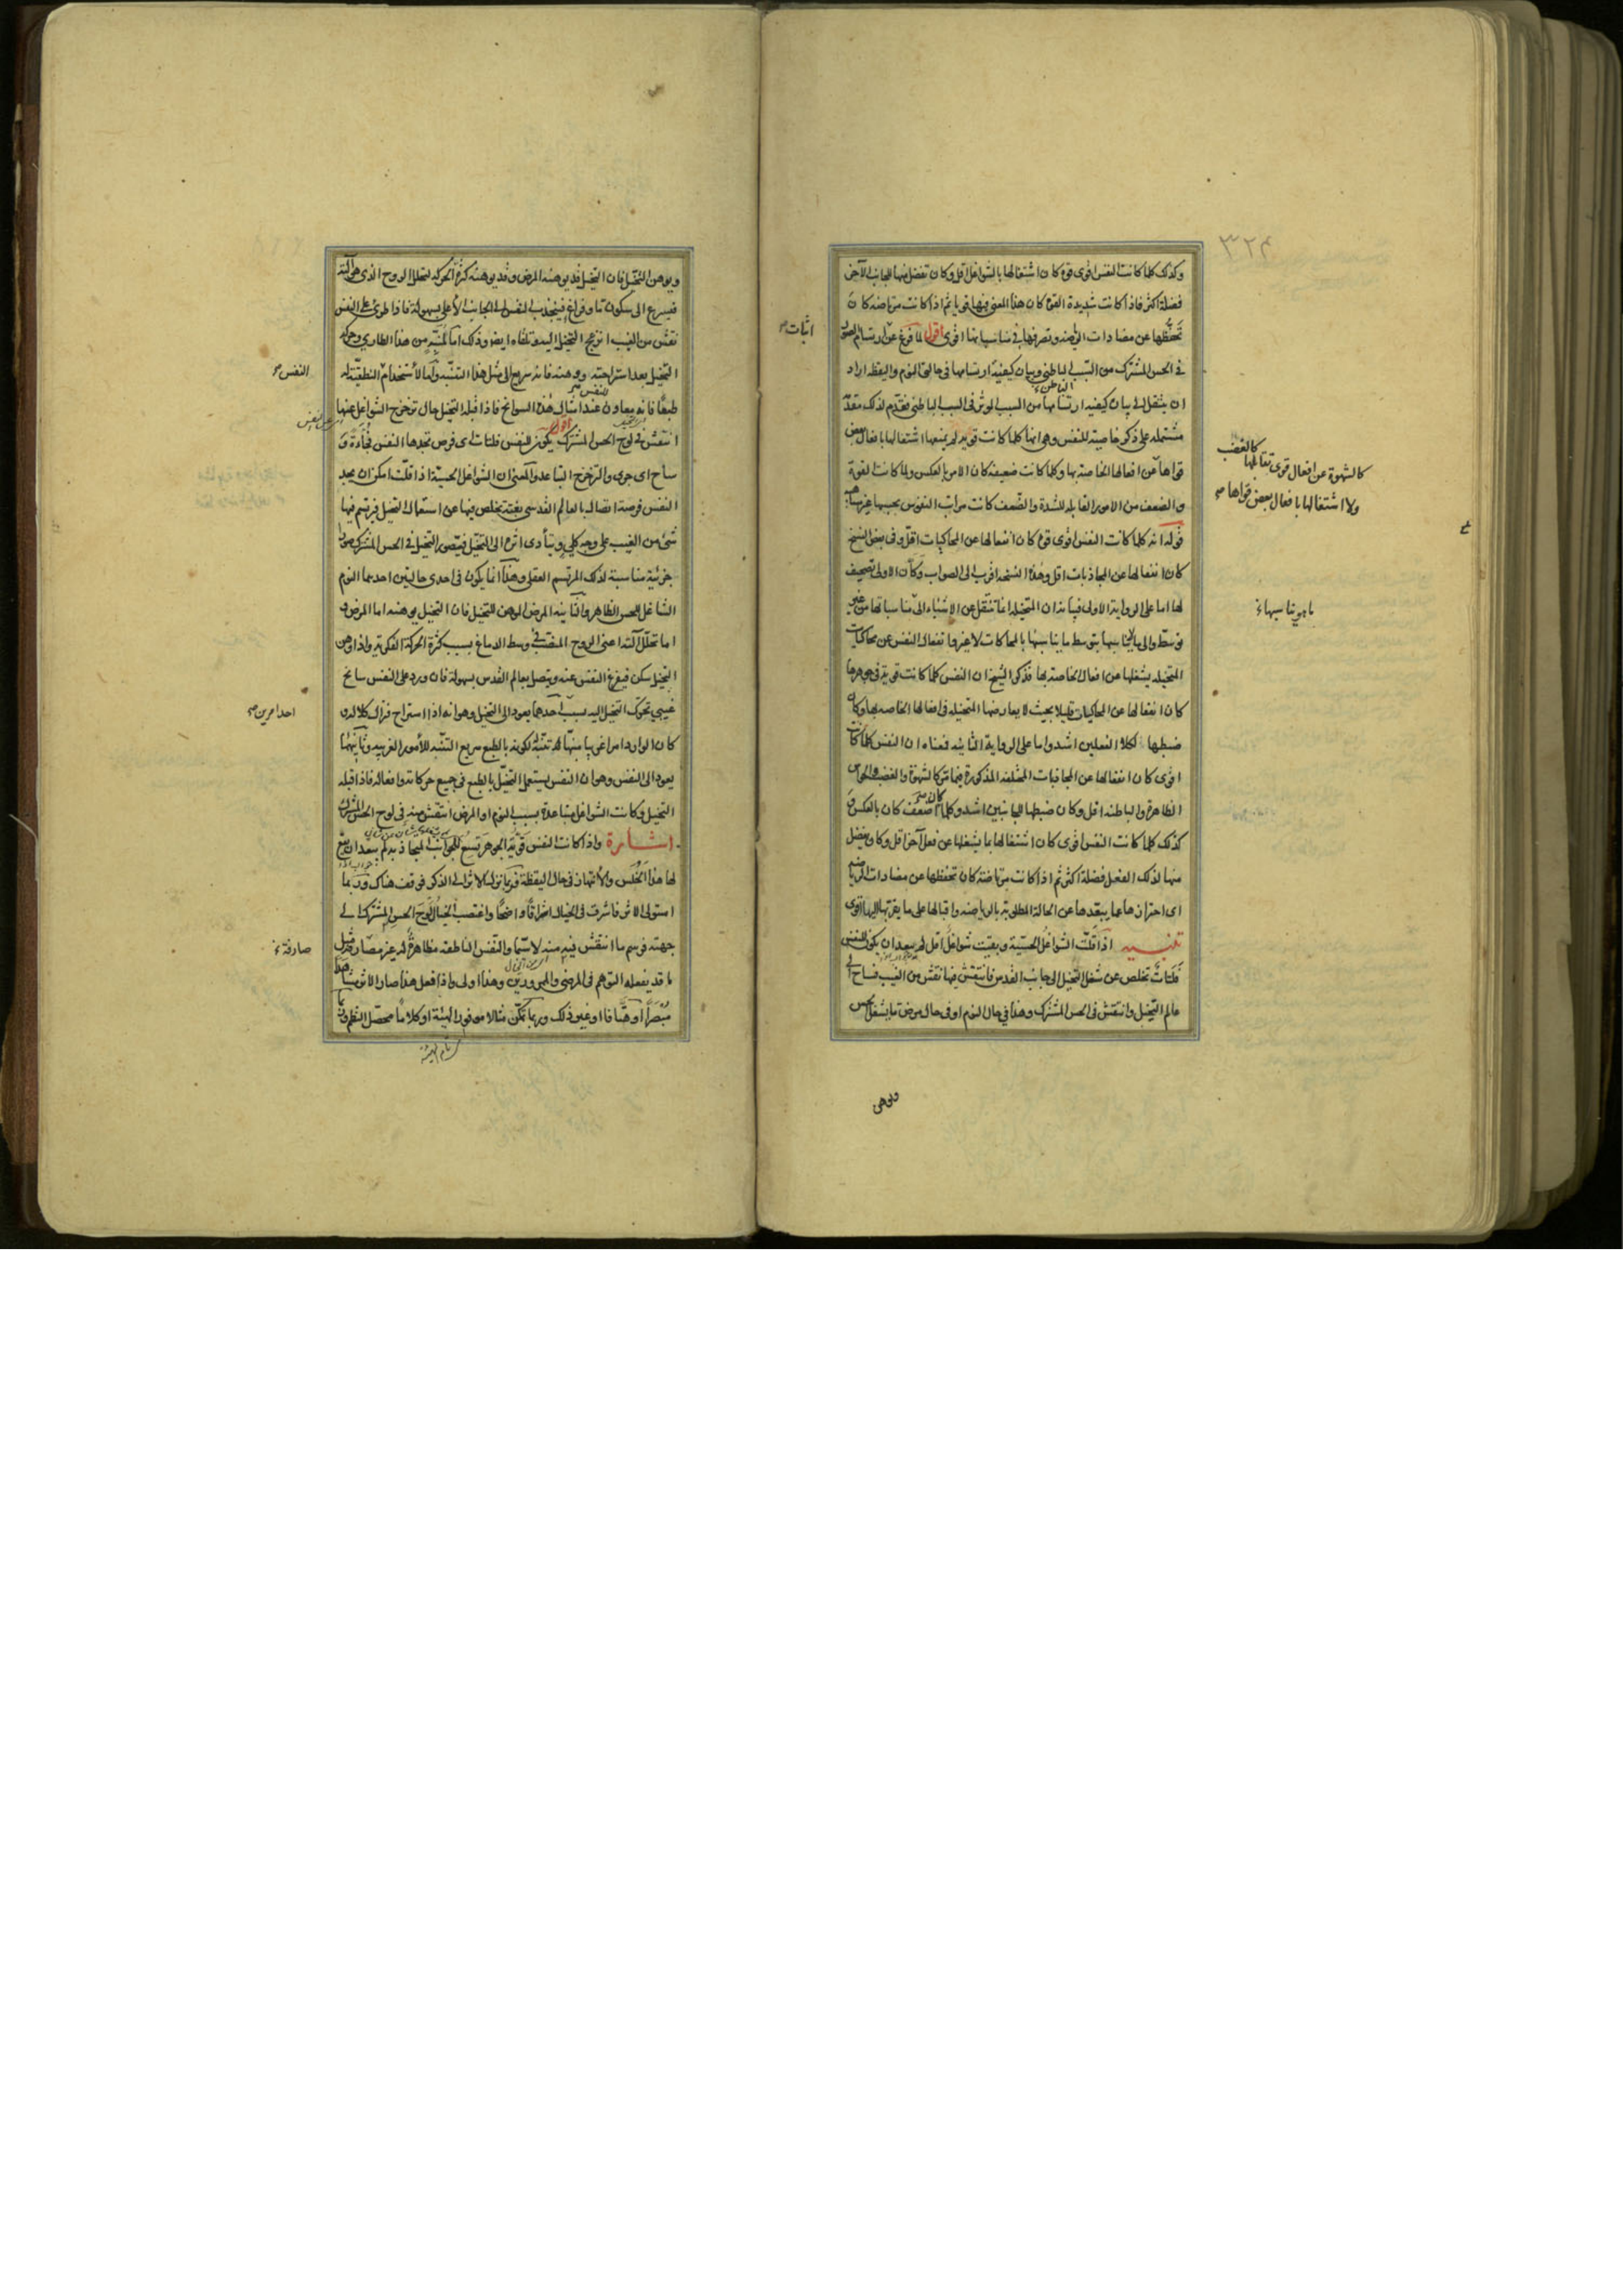 ٣٢٤
وكذلك كلما كانت النفس اقوى قوة كان اشتغالها بالشواغل اقل وكان تفضل منها للجانب الآخر
فضلة اكثر فاذا كانت شديدة القوة كان هذا المعنى فيها قويا ثم اذا كانت مرتاضة كان
تحفّظها عن مضادات الرياضة وتصرفها فى مناسباتها اقوى اقول لما فرغ عن ارتسام الصور
فى الحس المشترك من السبب الباطنى وبيان كيفية ارتسامها فى حالتى النوم واليقظة اراد
ان ينتقل الى بيان كيفية ارتسامها من السبب المؤثر فى السبب الباطنى فقدم لذلك مقدمة
مشتملة على ذكر خاصية للنفس وهى انها كلما كانت قوية لم يمنعها اشتغالها بافعال بعض
قواها عن افعالها الخاصة بها وكلما كانت ضعيفة كان الامر بالعكس ولما كانت القوة
والضعف من الامور القابلة للشدة والضعف كانت مراتب النفوس بحسبها غير متناهية
قوله انه كلما كانت النفس اقوى قوة كان انفعالها عن المحاكيات اقل وفى بعض النسخ
كان انفعالها عن المجاذبات اقل وهذه النسخة اقرب الى الصواب وكأن الاولى تصحيف
لها اما على الرواية الاولى فبيانه ان المتخيلة انما تنتقل عن الاشياء الى مناسباتها من غير
توسط والى ما لا يناسبها بتوسط ما يناسبها بالمحاكات لا غير وانفعال النفس عن محاكيات
المتخيلة يشغلها عن افعالها الخاصة بها فذكر الشيخ ان النفس كلما كانت قوية فى جوهرها
كان انفعالها عن المحاكيات قليلا بحيث لا يعارضها المتخيلة فى افعالها الخاصة بها وكان
ضبطها لكلا الفعلين اشد واما على الرواية الثانية فمعناه ان النفس كلما كانت
اقوى كان انفعالها عن المجاذبات المختلفة المذكورة فيما مر كالشهوة والغضب والحواس
الظاهرة والباطنة اقل وكان ضبطها للجانبين اشد وكلما كان اضعف كان بالعكس و
كذلك كلما كانت النفس اقوى كان اشتغالها بما يشغلها عن فعل آخر اقل وكان يفضل
منها لذلك الفعل فضلة اكثر ثم اذا كانت مرتاضة كان تحفظها عن مضادات الرياضة
اى احترازها عما يبعدها عن الحالة المطلوبة بالرياضة واقبالها على ما يقربها اليها اقوى
تنبيه اذا قلّت الشواغل الحسيّة وبقيت شواغل اقل لم يبعد ان يكون للنفس
فلتات تخلص عن شغل التخيل الى جانب القدس فانتقش فيها نقش من الغيب فساح الى
عالم التخيل وانتقش فى الحس المشترك وهذا فى حال النوم او فى حال مرض ما يشغل الحس
ويوهن
كالشهوة عن افعال قوى تقابلها كالغضب
ولا اشتغالها بافعال بعض قواها صح
اثبات صح
ويوهن التخيل فان التخيل قد يوهنه المرض وقد يوهنه كثرة الحركة لتحلل الروح الذى هو آلته
فيسرع الى سكون ما وفراغ فينجذب النفس الى الجانب الأعلى بسهولة فاذا طرئ على النفس
نقش من الغيب انزعج التخيل اليه وتلقاه ايضا وذلك اما لمنبّه من هذا الطارى وحركة
التخيل بعد استراحته ووهنه فانه سريع الى مثل هذا التنبّه واما لاستخدام النطقيّة له
طبعًا فانه معاون للنفس عند امثال هذه السوانح فاذا قبله التخيل حال تزحزح الشواغل عنها
انتقش فى لوح الحس المشترك اقول يكون للنفس فلتات اى فرص تجدها النفس فُجاءَةً و
ساح اى جرى والتزحزح التباعد والمعنى ان الشواغل الحسيّة اذا قلّت امكن ان يجد
النفس فرصة اتصال بالعالم القدسى بغتة تخلص فيها عن استعمال التخيل فيرتسم فيها
شئ من الغيب على وجه كلى ويتأدى اثره الى التخيّل فيصور التخيل فى الحس المشترك صورا
جزئية مناسبة لذلك المرتسم العقلى وهذا انما يكون فى احدى حالتين احديهما النوم
الشاغل للحس الظاهر والثانية المرض الموهن للتخيل فان التخيل يوهنه اما المرض و
اما تحلل آلته اعنى الروح المنصب فى وسط الدماغ بسبب كثرة الحركة الفكرية واذا وهن
التخيل سكن فيفرغ النفس عنه ويتصل بعالم القدس بسهولة فان ورد على النفس سانح
غيبى تحرك التخيل اليه بسبب احدهما يعود الى التخيل وهو انه اذا استراح فزال كلاله و
كان الوارد امرا غريبا منبّها له تنبّه لكونه بالطبع سريع التنبّه للأمور الغريبة وثانيهما
يعود الى النفس وهو ان النفس يستعمل التخيّل بالطبع فى جميع حركاته وافعاله فاذا قبله
التخيل وكانت الشواغل متباعدة بسبب النوم او المرض انتقش منه فى لوح الحس المشترك
اشارة واذا كانت النفس قويّة الجوهر تسع للجوانب المتجاذبة لم يبعد ان يقع
لها هذا الخُلَس والانتهاز فى حال اليقظة فربما نزل الاثر الى الذكر فوقف هناك وربما
استولى الاثر فاشرق فى الخيال اشراقًا واضحًا واغتصب الخيال لوح الحس المشترك الى
جهته فرسم ما انتقش فيه منه لا سيّما والنفس الناطقة مظاهرة له غير مصارفة مثل
ما قد يفعله التوهم فى المرضى والممرورين وهذا اولى واذا فعل هذا صار الاثر مشاهدا
مُبْصَرًا او هتافا او غير ذلك وربما تمكّن مثالا موفور الهيئة او كلاما محصّل النظم
النفس صح
احد امرين صح